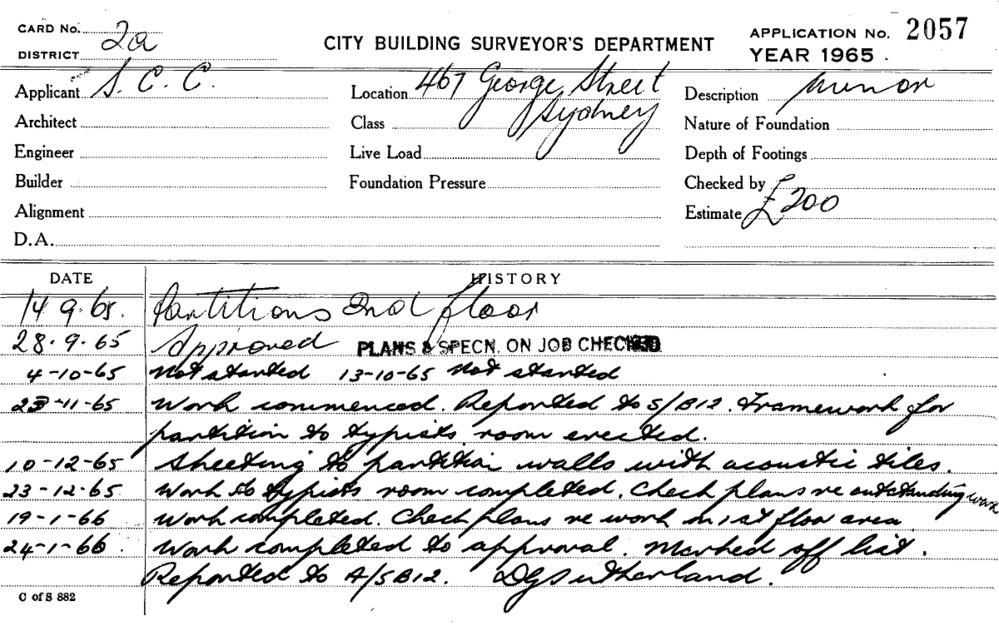 CARD No. 2a
DISTRICT
CITY BUILDING SURVEYOR'S DEPARTMENT
APPLICATION No. 2057
YEAR 1965.
Applicant S. C. C.
Location 467 George Street Sydney
Description Minor
Architect
Class
Nature of Foundation
Engineer
Live Load
Depth of Footings
Builder
Foundation Pressure
Checked by
Alignment
Estimate £200
D.A.
DATE HISTORY
14 9.65. Partitions 2nd floor
28.9.65 Approved PLANS & SPECN. ON JOB CHECKED
4-10-65 Not started 13-10-65 Not started
23-11-65 Work commenced. Reported to S/B12. Framework for
partition to typists room erected.
10-12-65 Sheeting to partition walls with acoustic tiles.
23-12-65 Work to typists room completed. Check plans re outstanding work
19-1-66 Work completed. Check plans re work on 1st floor area
24-1-66. Work completed to approval. Marked off list.
Reported to A/SB12. DGSutherland.
C of S 882